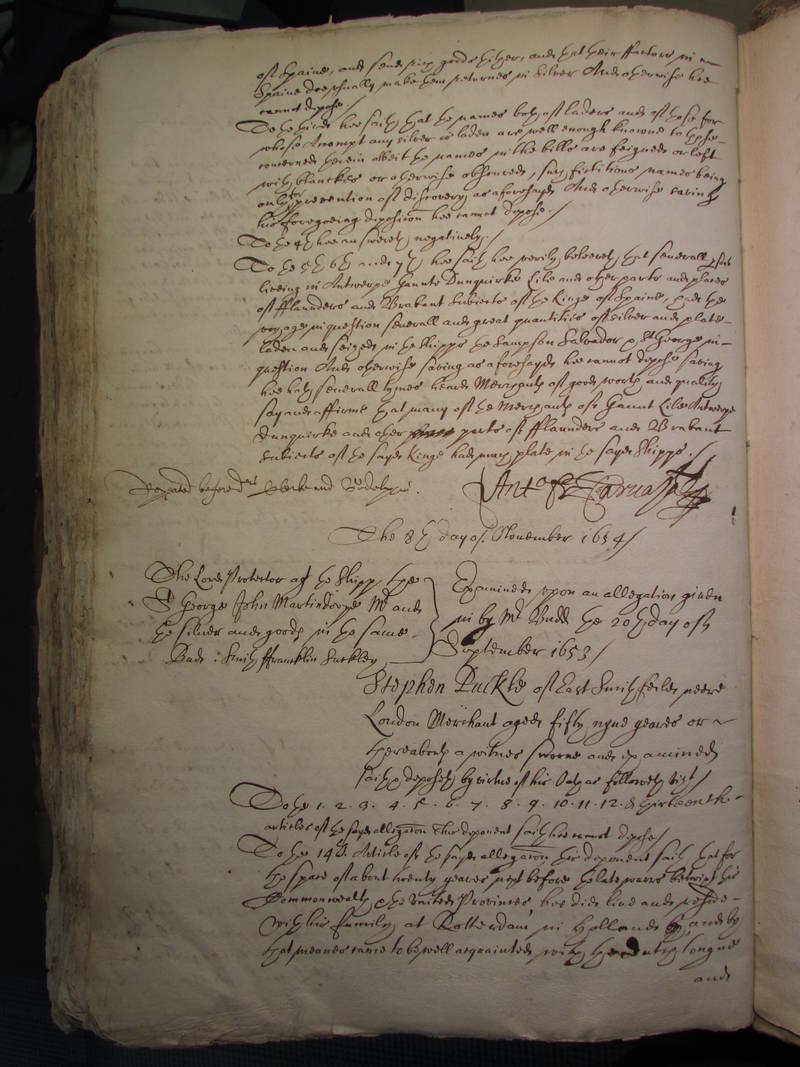 of Spaine, and send such goods thither, and that their ffactors in
Spaine doe usually make them returnes in silver And otherwise hee
cannot depose./
To the third hee saith that the names both of laders and of those for
whose Accompt any silver is laden are well enough knowne to those
concerned therein albeit the names in the bills are feigned or left
with blanckes or otherwise obscured, such fictitious names being
onely prevention of discovery as aforesayd And otherwise saving
his foregoeing deposicon hee cannot depose./
To the 4th hee answereth negatively./
To the 5th 6th and 7th hee saith hee verily beleeveth that severall
liveing in Antwerpe Gaunte Dunquirke Lile and other parts and places
of fflaunders and Brabant Subiects of the Kinge of Spaine, had the
voyage in question severall and great quantities of silver and plate
laden and seized in the shipps the Sampson Salvador & St George in
question And otherwise saving as aforesayd hee cannot depose saving
hee hath severall tymes heard Merchants of good worth and quality
say and affirme that many of the Merchants of Gaunt Lile Antwerpe
Dunquirke and other parts of fflaunders and Brabant
Subiects of the sayd Kinge had much plate in the sayd Shipps./
Repeated before
The 8th day of November 1654/
The Lord Protector agt the shipp the
St George John Martinsdorpe Mr and
the silver and goods in the same
Budd: Smith ffrancklin Suckley
Examined upon an allegation given
in by Mr Budd the 20th day of
September 1653/
Stephen Puckle of East Smithfeild neere
London Merchant aged fifty nyne yeares or
thereabouts a witnes sworne and examined
saith & deposeth by virtue of his Oath as followeth Vizt/
To the 1. 2. 3. 4. 5. 6. 7. 8. 9. 10. 11. 12. & thirteenth
articles of the sayd allegation this deponent saith hee cannot depose/
To the 14th Article of the sayd allegation this deponent saith that for
the space of about twenty yeares next before the late warrs betwixt this
Commonwealth & the United Provinces hee did live and reside
with his family at Rotterdam in Holland and by
that meanes came to be well acquainted with the dutch tongue
and